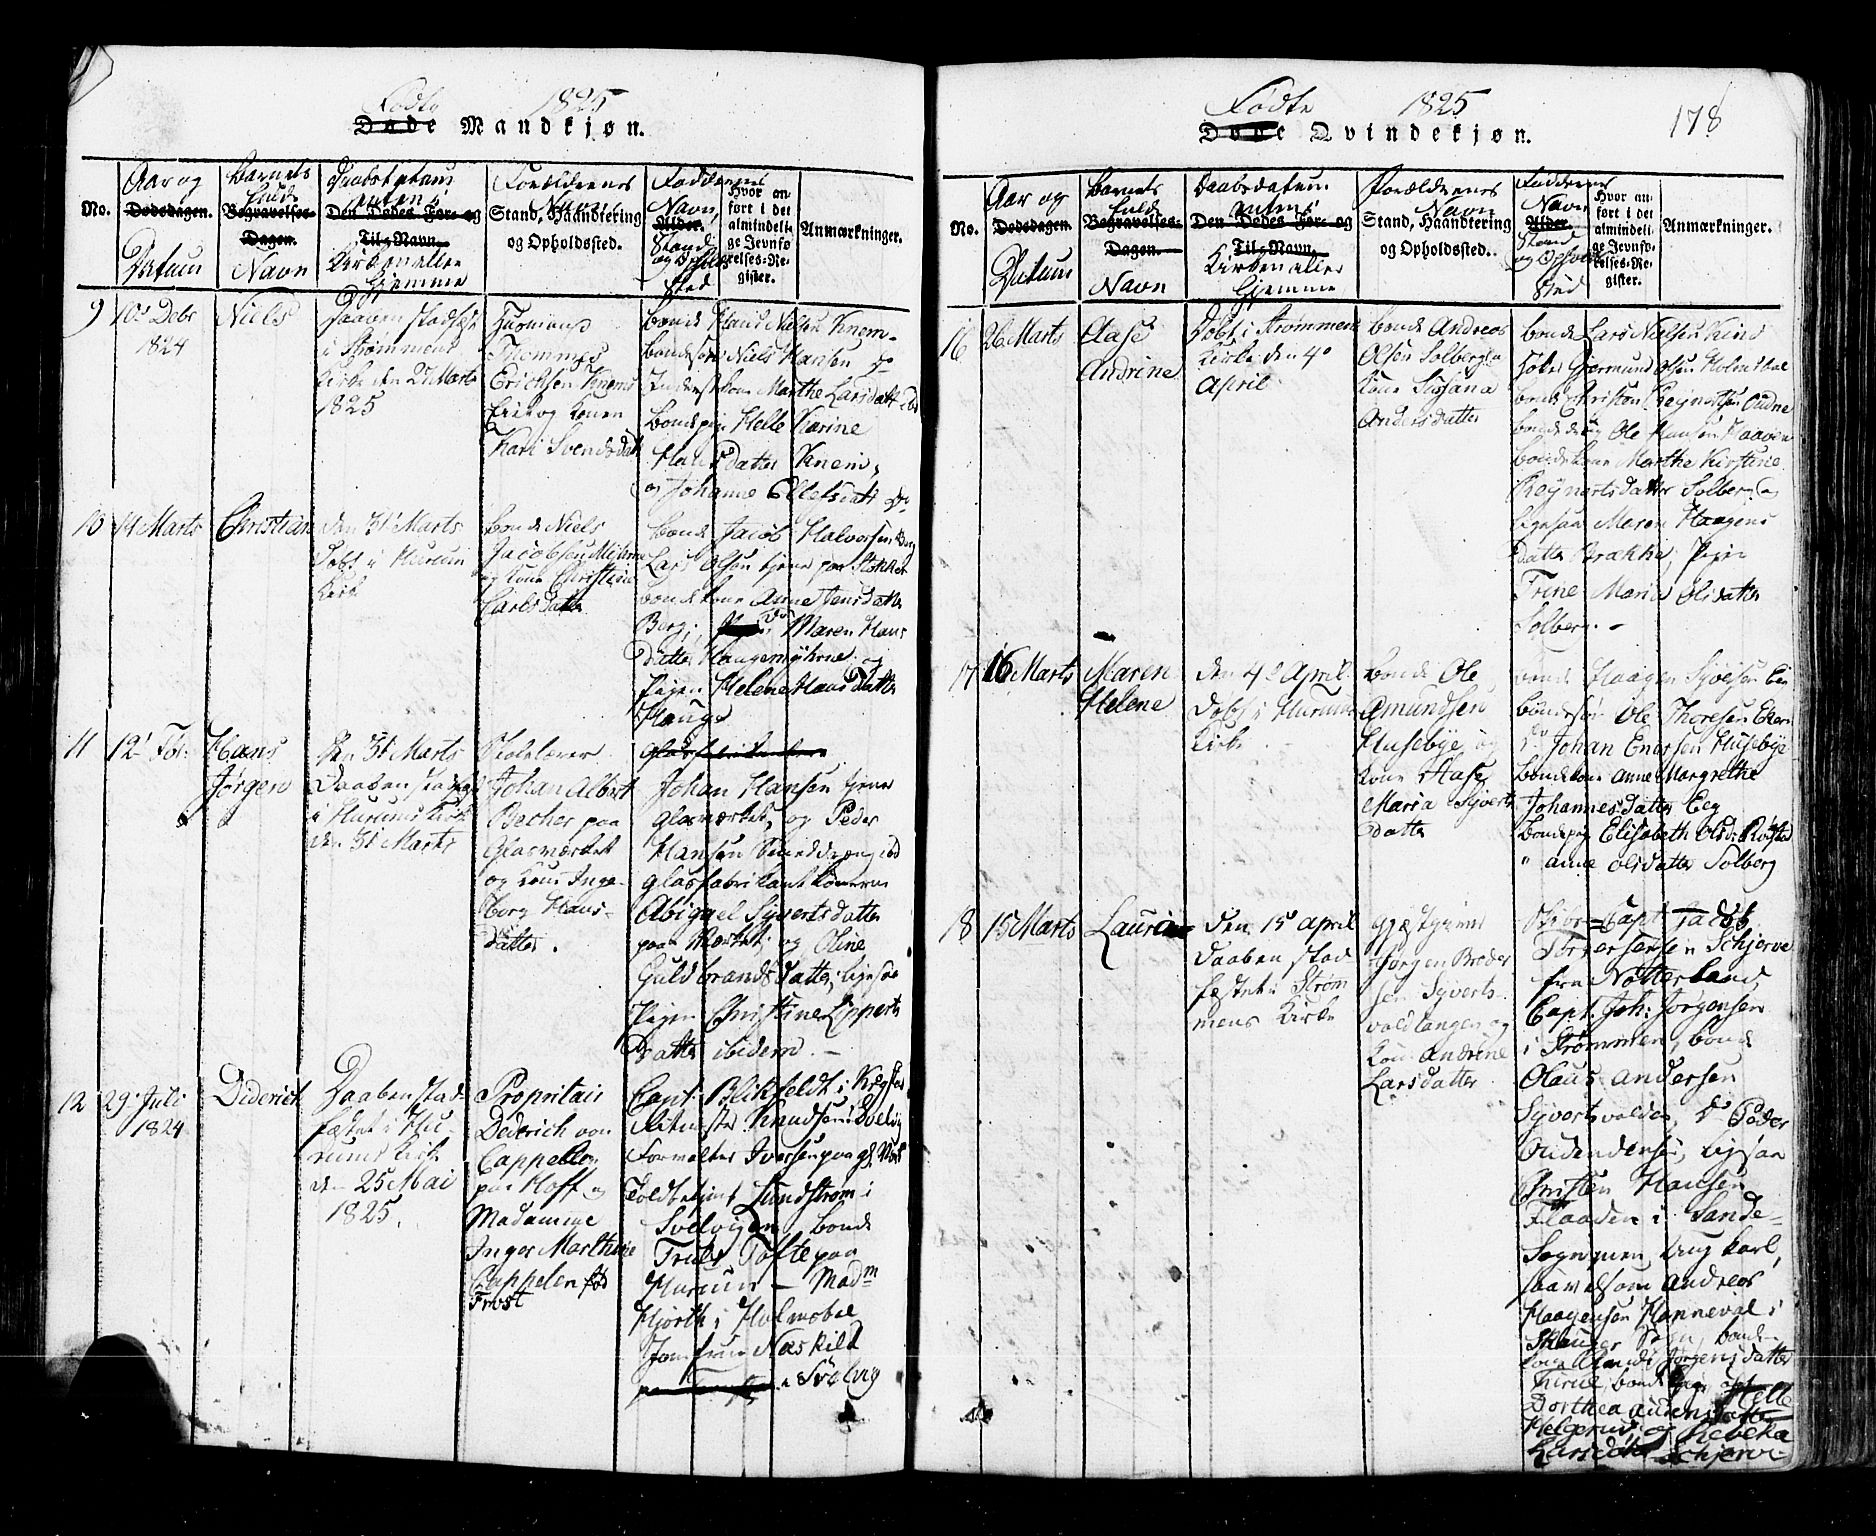 Fødte 1825
Døde Mandkjøn.
No.
Aar og
Dødsdagen.
Datum
Barnets
fulde
Begravelses-
Dagen.
Navn
Daabsdatum
enten i
Den Dødes For- og
Til-Navn.
Kirken aller
Hjemme
Forældrenes
Navn
Stand, Haandtering
og Opholdssted.
Faddernes
Navn,
Alder.
Stand
og Opholds
sted
Hvor an-
ført i det
almindeli-
ge Jevnfø-
relses-Re-
gister.
Anmærkninger.
9
10 Debr
1824
Niels
Daaben stadfæst
i Strømmens
Kirke den 27 Marts
1825
Huusmand
Thommes
Erichsen Knems
Eiet og Konen
Kari Svendsdatt
bonde Hans Nielsen Knem-
bondesøn Niels Hansen do
Inderstkone Marthe Larsdatt do
bondepige Helle Karine
Hansdatter Knem,
og Johanne Ellefsdatt do
10
14 Marts
Christian
den 31 Marts
Døbt i Hurum
Kirke
bonde Niels
Jacobsen Myhrene
og kone Christine
Carlsdatter
bonde Jacob Halvorsen Berg
Lars Olsen tjener paa Stokker
bondekone Anne Jensdatter
Berg; do Maren Hans
datter Haugemyhrne og
Pigen Helene Hansdatter
Hauge
11
12 For.
Hans
Jørgen
den 31 Marts
Daaben stadfæst
i Hurums Kirke
den 31 Marts
Skolelærer
Johan Albert
Becher paa
Glasværket
og kone Inge-
borg Hans-
datter.
Johan Hansen tjener
Glasværket, og Peder
Hansen Smeddreng ibd
Glasfabrikant konerne
Abigael Syvertsdatter
paa Værket og Oline
Guldbrandsdatter, ligesaa
Pigen Christine Lipperts
Datter ibidem.-
12
29 Juli
1824
Diderich
Daaben stad
fæstet i Hu-
rums Kirke
den 25 Mai
1825.
Propritair
Dederich von
Cappellen
paa Hoff og
Madamme
Inger Marthine
Cappelen fød
Frost
Capt: Blikfeldt i
Ritmester Knudsen i Svelvig
Formalter Iversen paa gl. Værk
Toldbetjent Lundstrøm i
Svelvigen bonde
Truls Tofte paa
Hurum - Madm
Hjorth i Holmsboe
Jomfrue Naskild
i Svelvig
Fødte 1825
178
Døde Qvindekjøn.
No.
Aar og
Dødsdagen.
Datum
Barnets
fulde
Begravelses-
Dagen.
Navn
Daabsdatum
enten i
Den Dødes For- og
Til-Navn.
Kirken aller
Hjemme
Forældrenes
Navn
Stand, Haandtering
og Opholdssted.
Faddernes
Navn
Alder.
Stand
og Opholds
sted
Hvor an-
ført i det
almindeli-
ge Jevnfø-
relses-Re-
gister.
Anmærkninger.
16
26 Marts
Aase
Andrine
Døbt i Strømmens
Kirke den 4de
April
bonde Andreas
Olsen Solberg og
kone Susana
Andersdatter
bonde Lars Nielsen
Gjermund Olsen Holmsboe
bonde Christon Reynertsen Oudne
bondedreng Ole Hansen Haaven
bondekone Marthe Kirstine
Reynertsdatter Solberg og
ligesaa Maren Haagens
datter Brække, Pige
Trine Marie Olsdatter
Solberg.-
17
16 Marts
Maren
Helene
den 4de April
døbt i Hurum
Kirke
bonde Ole
Amundsen
Husebye og
kone Aase
Maria Syverts
datter
bonde Haagen Syversen
bondesøn Ole Thoresen
do Johan Enersen Husebye
bondekone Anne Margrethe
Johannesdatter Eeg
bondepig Elisabeth Olsd: Røgstad
" Anne Olsdatter Solberg
18
15 Marts
Laurine
Den 15 April
Daaben stad
fæstet i Strøm
mens Kirke
Gjæstgiver
Jørgen Breder
sen Syverts
voldtangen og
kone Andrine
Larsdatter
Skibs-Capt: Jacob
Torgersen Schjerve
fra Nøtterland,
Capt. Joh: Jørgensen
i Strømmen, bonde
Olaus Andersen
Syvertsvolden, do Peder
ligesaa
Christen Hansen
Flaaden i Sande-
Sogn, ung karl,
saavelsom Andreas
Haagensen Hanneval i
Skauger Sogn, bonde-
kone Jørgensdatter
Dorthea
og Rebekka
Larsdatter Schjerve